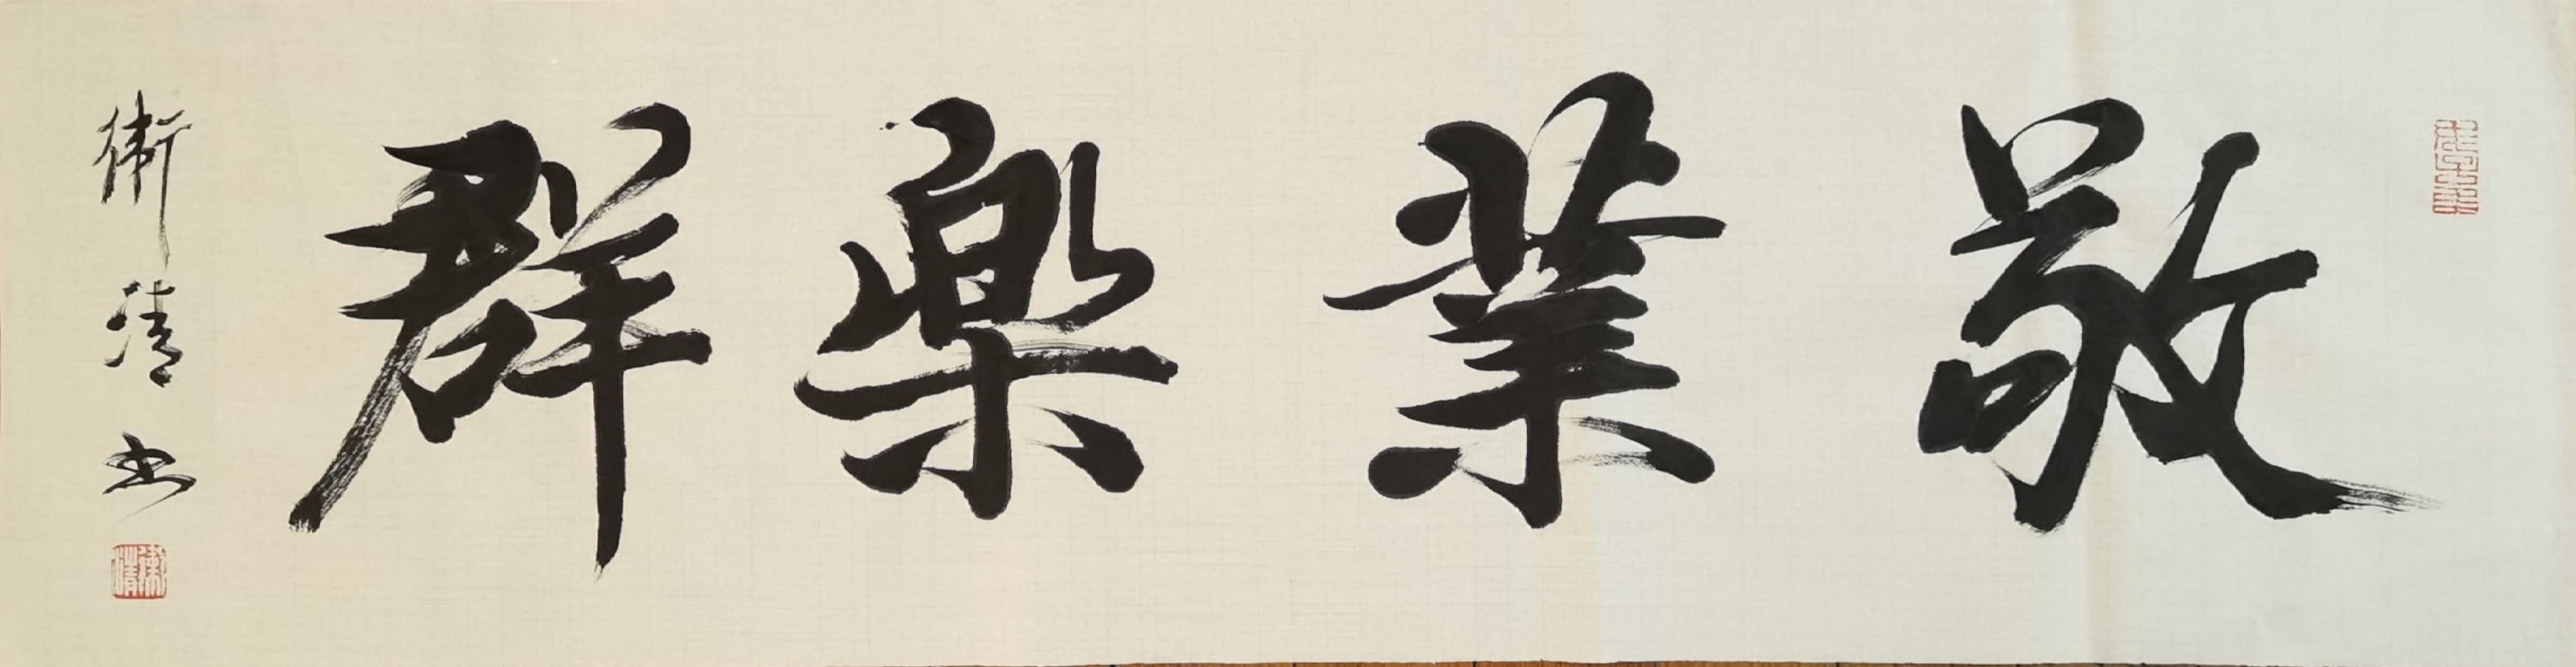 敬業樂群
衛清书
衛清